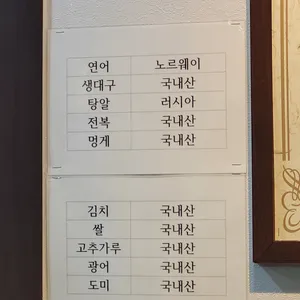 연어 노르웨이
생대구 국내산
탕알 러시아
전복 국내산
멍게 국내산
김치 국내산
쌀 국내산
고추가루 국내산
광어 국내산
도미 국내산